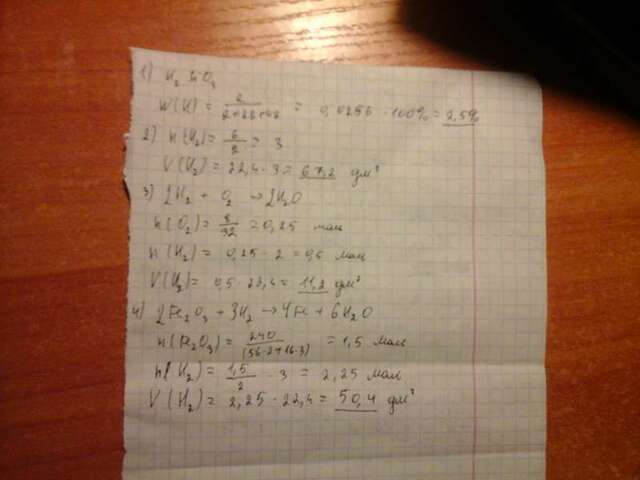 1) H₂SiO₃
W(H) = 2/(2+28+48) = 0,0256 · 100% = 2,5%
2) n(H₂) = 6/2 = 3
V(H₂) = 22,4 · 3 = 67,2 дм³
3) 2H₂ + O₂ → 2H₂O
n(O₂) = 8/32 = 0,25 моль
n(H₂) = 0,25 · 2 = 0,5 моль
V(H₂) = 0,5 · 22,4 = 11,2 дм³
4) 2Fe₂O₃ + 3H₂ → 4Fe + 6H₂O
n(Fe₂O₃) = 240/(56·2+16·3) = 1,5 моль
n(H₂) = 1,5/2 · 3 = 2,25 моль
V(H₂) = 2,25 · 22,4 = 50,4 дм³